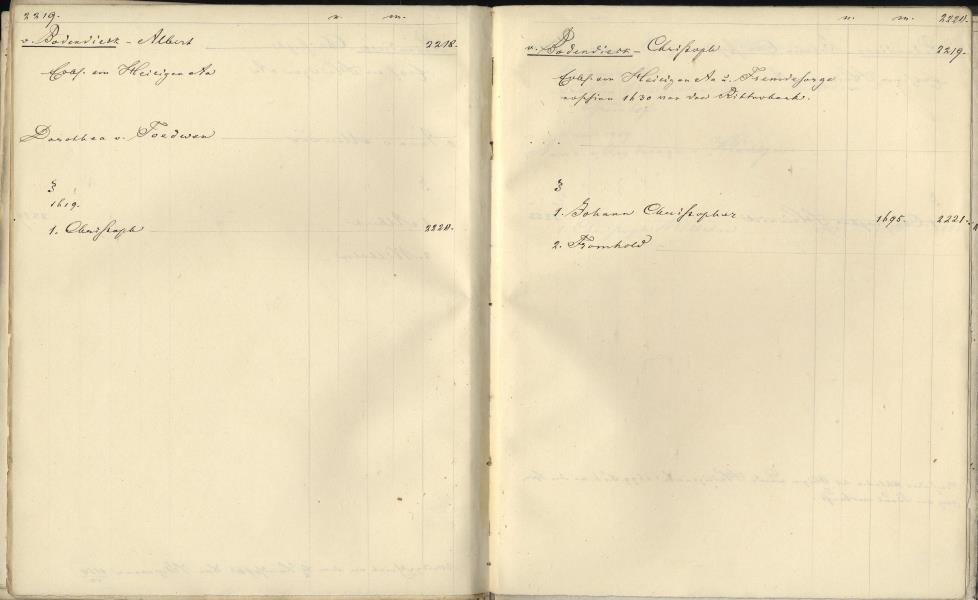 2219. n. m.
v. Bodendiek - Albert 2218.
Erbh. von Heiligen Aa
Dorothea v. Toedwen
3
1619.
1. Christoph 2220.
n. m. 2220.
v. Bodendiek - Christoph 2219.
Erbh. von Heiligen Aa u. Fremdesorge
erschien 1630 vor der Ritterbank.
3
1. Johann Christopher 1695. 2221.
2. Fromhold